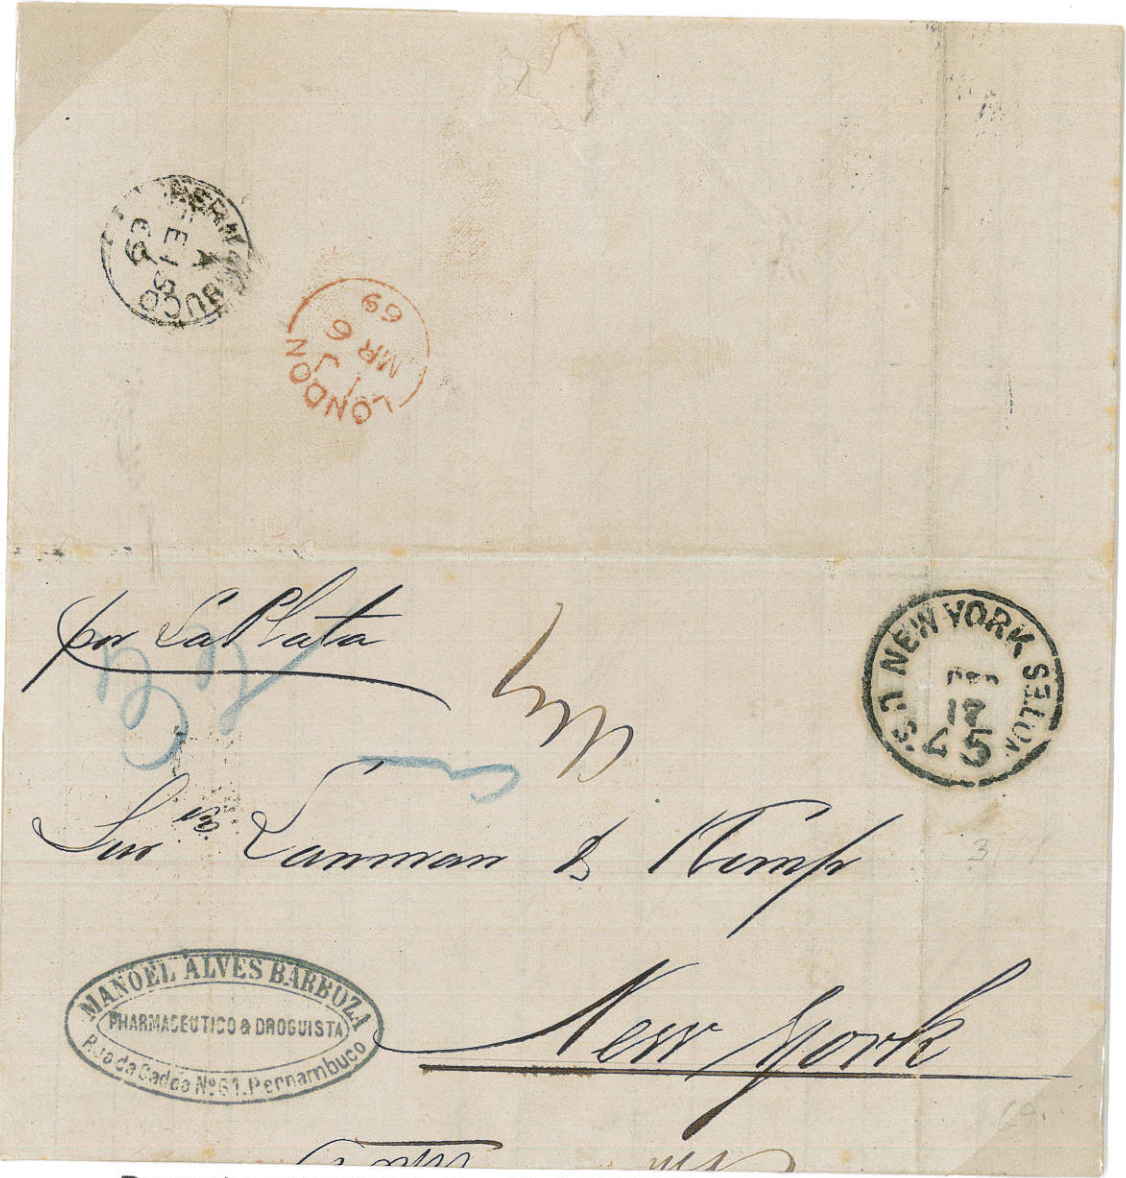 PERNAMBUCO
A
69
LONDON
J
MR 6
69
por La Plata
NEW YORK
U.S. NOTES
45
Snr es Lanman & Kemp
New York
MANOEL ALVES BARBUZA
PHARMACEUTICO & DROGUISTA
Rua da Cadea Nº 61. Pernambuco